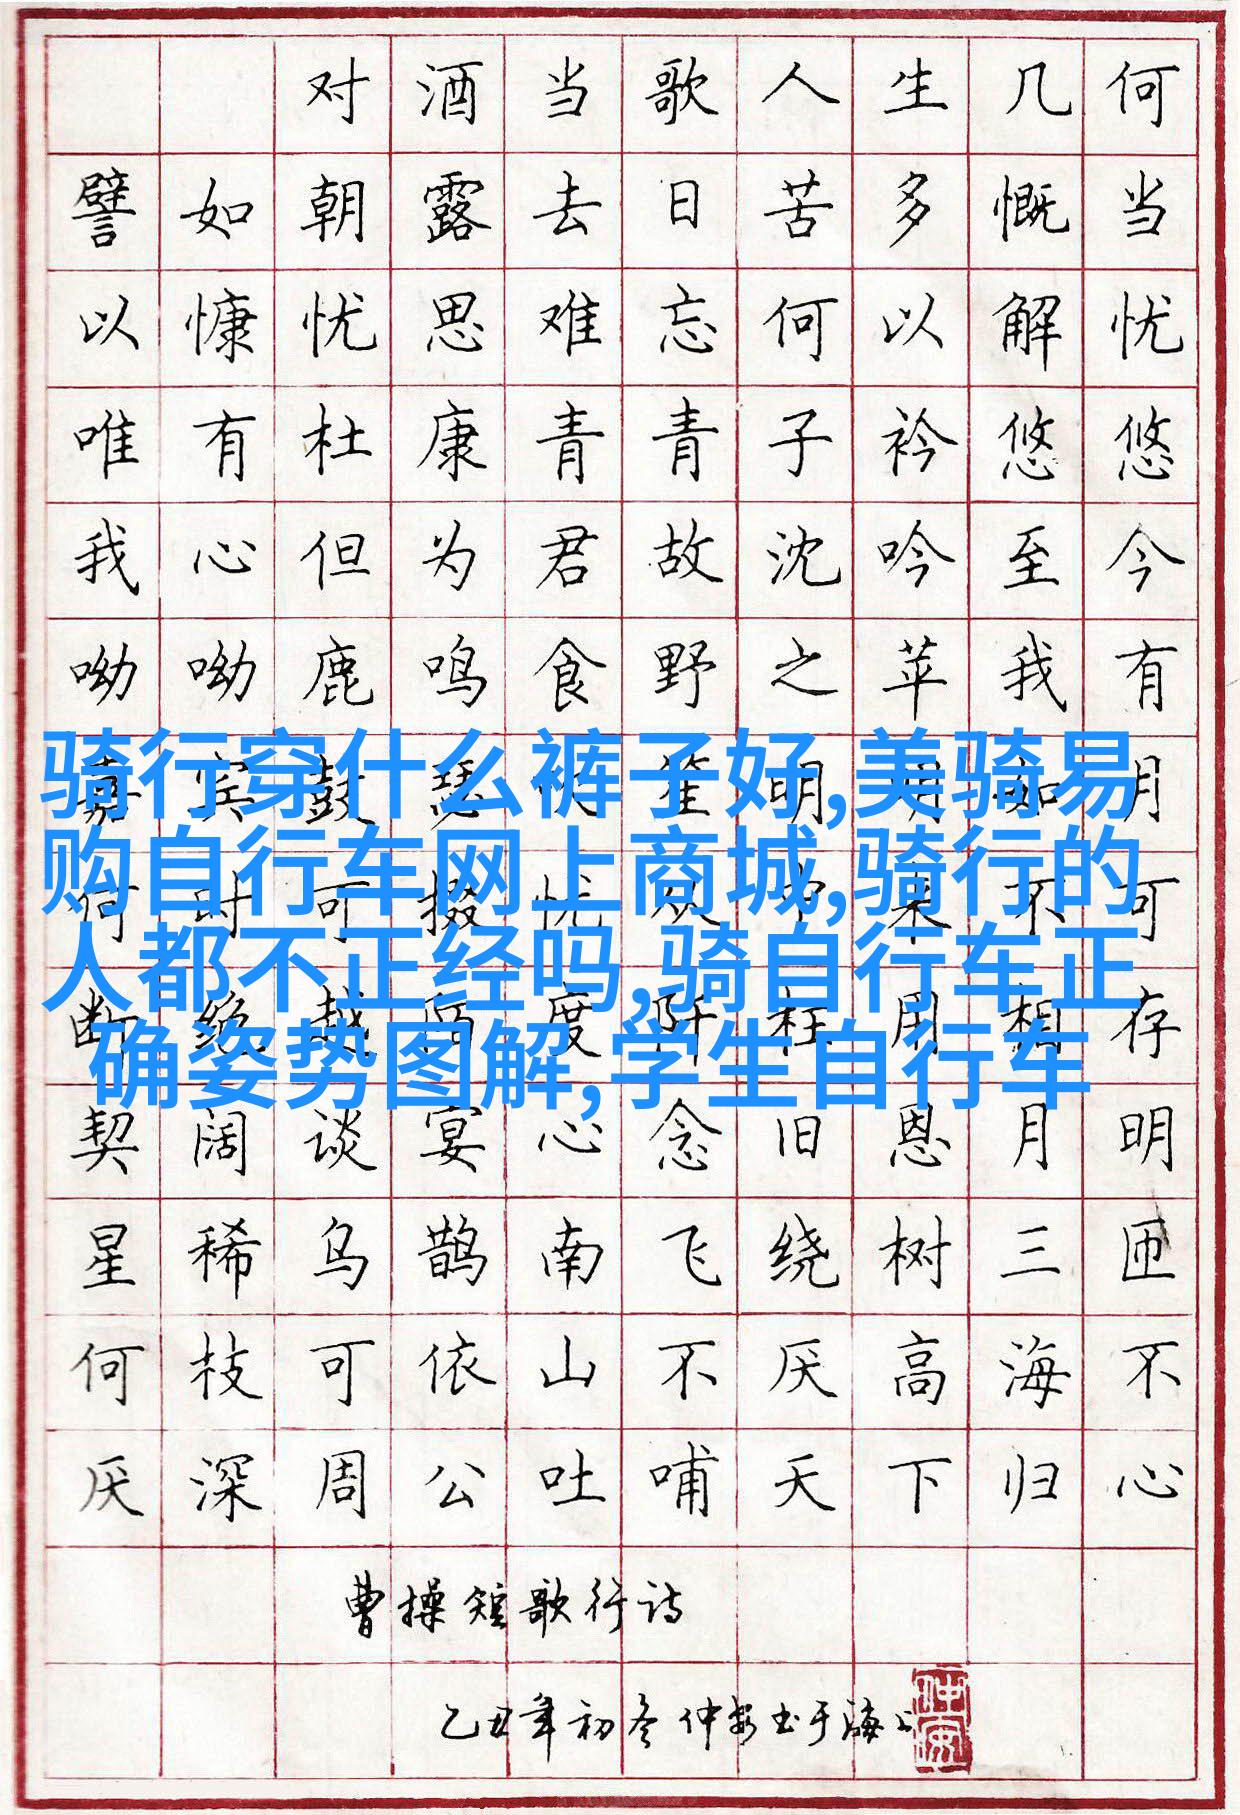 对酒当歌人生几何
譬如朝露去日苦多慨当
以慷忧思难忘何以解忧
唯有杜康青青子衿悠悠
我心但为君故沈吟至今
呦呦鹿鸣食野之苹我有
嘉宾鼓瑟吹笙明明如月
骑行穿什么裤子好,美骑易
购自行车网上商城,骑行的
何时可掇忧从中来不可
人都不正经吗,骑自行车正
断绝越陌度阡枉用相存
确姿势图解,学生自行车
契阔谈宴心念旧恩月明
星稀乌鹊南飞绕树三匝
何枝可依山不厌高海不
厌深周公吐哺天下归心
曹操短歌行诗
乙丑年初冬仲安书于海上
仲安